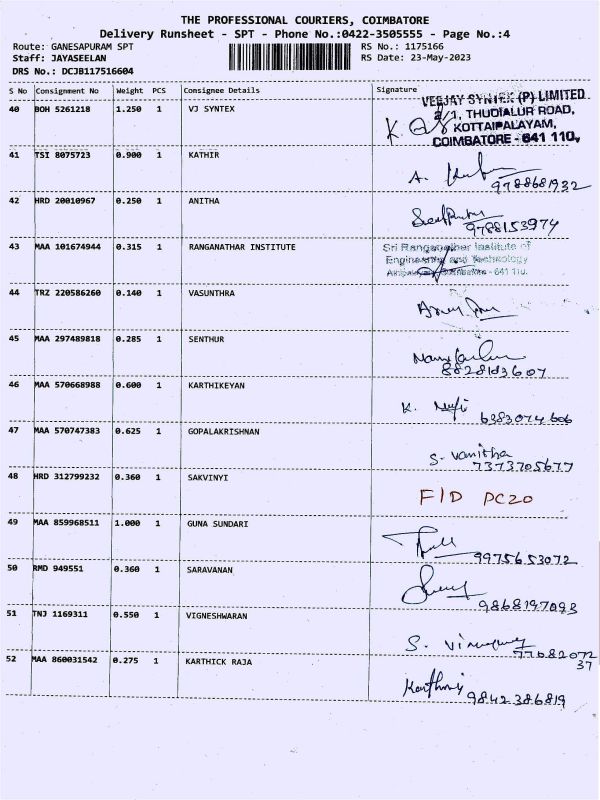 THE PROFESSIONAL COURIERS, COIMBATORE
Delivery Runsheet - SPT - Phone No.:0422-3505555 - Page No.:4
Route: GANESAPURAM SPT RS No.: 1175166
Staff: JAYASEELAN RS Date: 23-May-2023
DRS No.: DCJB117516604
S No Consignment No Weight PCS Consignee Details Signature
40 BOH 5261218 1.250 1 VJ SYNTEX
VEEJAY SYNTEX (P) LIMITED
2/1, THUDIALUR ROAD,
KOTTAIPALAYAM,
COIMBATORE - 641 110,
41 TSI 8075723 0.900 1 KATHIR
A.
9788681932
42 HRD 20010967 0.250 1 ANITHA
9788153974
43 MAA 101674944 0.315 1 RANGANATHAR INSTITUTE
Sri Ranganathar Institute of
Engineering and Technology
Coimbatore - 641 110.
44 TRZ 220586260 0.140 1 VASUNTHRA
45 MAA 297489818 0.285 1 SENTHUR
46 MAA 570668988 0.600 1 KARTHIKEYAN
K.
6383074606
47 MAA 570747383 0.625 1 GOPALAKRISHNAN
S. Vanitha
7373705677
48 HRD 312799232 0.360 1 SAKVINYI
FID PC20
49 MAA 859968511 1.000 1 GUNA SUNDARI
9975653072
50 RMD 949551 0.360 1 SARAVANAN
9868197093
51 TNJ 1169311 0.550 1 VIGNESHWARAN
S.
77082072
37
52 MAA 860031542 0.275 1 KARTHICK RAJA
9842386819